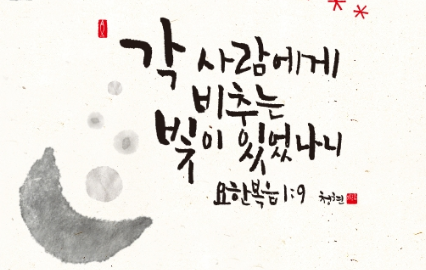 각 사람에게
비추는
빛이 있었나니
요한복음 1:9